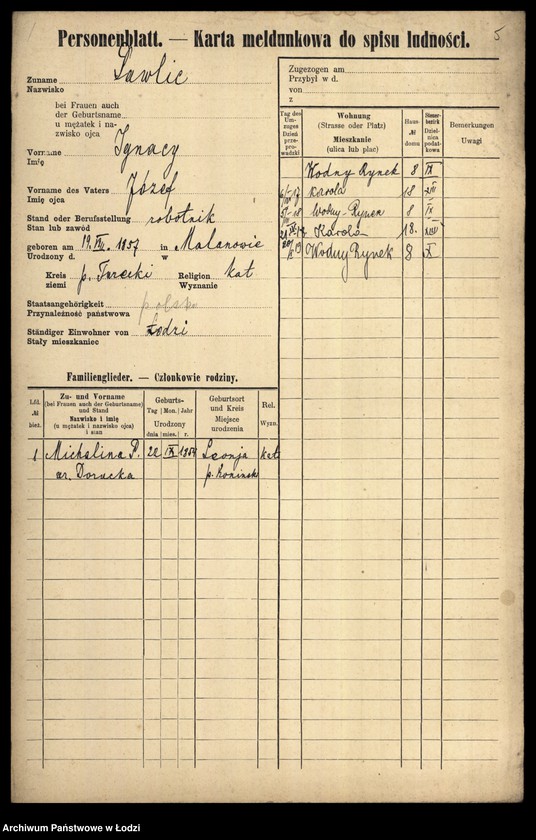 5
Personenblatt. — Karta meldunkowa do spisu ludności.
Zuname Sawlic
Nazwisko
bei Frauen auch
der Geburtsname
u mężatek i na-
zwisko ojca
Vorname Ignacy
Imię
Vorname des Vaters Józef
Imię ojca
Stand oder Berufsstellung robotnik
Stan lub zawód
geboren am 19. VII. 1857 in Malanowie
Urodzony d. w
Kreis p. Turecki Religion kat
ziemi Wyznanie
Staatsangehörigkeit polska
Przynależność państwowa
Ständiger Einwohner von Łodzi
Stały mieszkaniec
Zugezogen am
Przybył w d.
von
z
Tag des Um-zuges Dzień prze-prowadzki
Wohnung (Strasse oder Platz) Mieszkanie (ulica lub plac)
Haus-№ domu
Steuer-bezirk Dziel-nica podat-kowa
Bemerkungen Uwagi
Wodny Rynek 8 IX
Karola 18
Wodny-Rynek 8 IX
Karola 18.
Wodny Rynek 8 X
Familienglieder. — Członkowie rodziny.
Lfd. № bież.
Zu- und Vorname (bei Frauen auch der Geburtsname) und Stand Nazwisko i imię (u mężatek i nazwisko ojca) i stan
Geburts- Tag Mon. Jahr Urodzony dnia mies. r.
Geburtsort und Kreis Miejsce urodzenia
Rel. Wyzn.
1 Michalina P. 20 IX kat
ur. Dorucka p. Koniński
Archiwum Państwowe w Łodzi